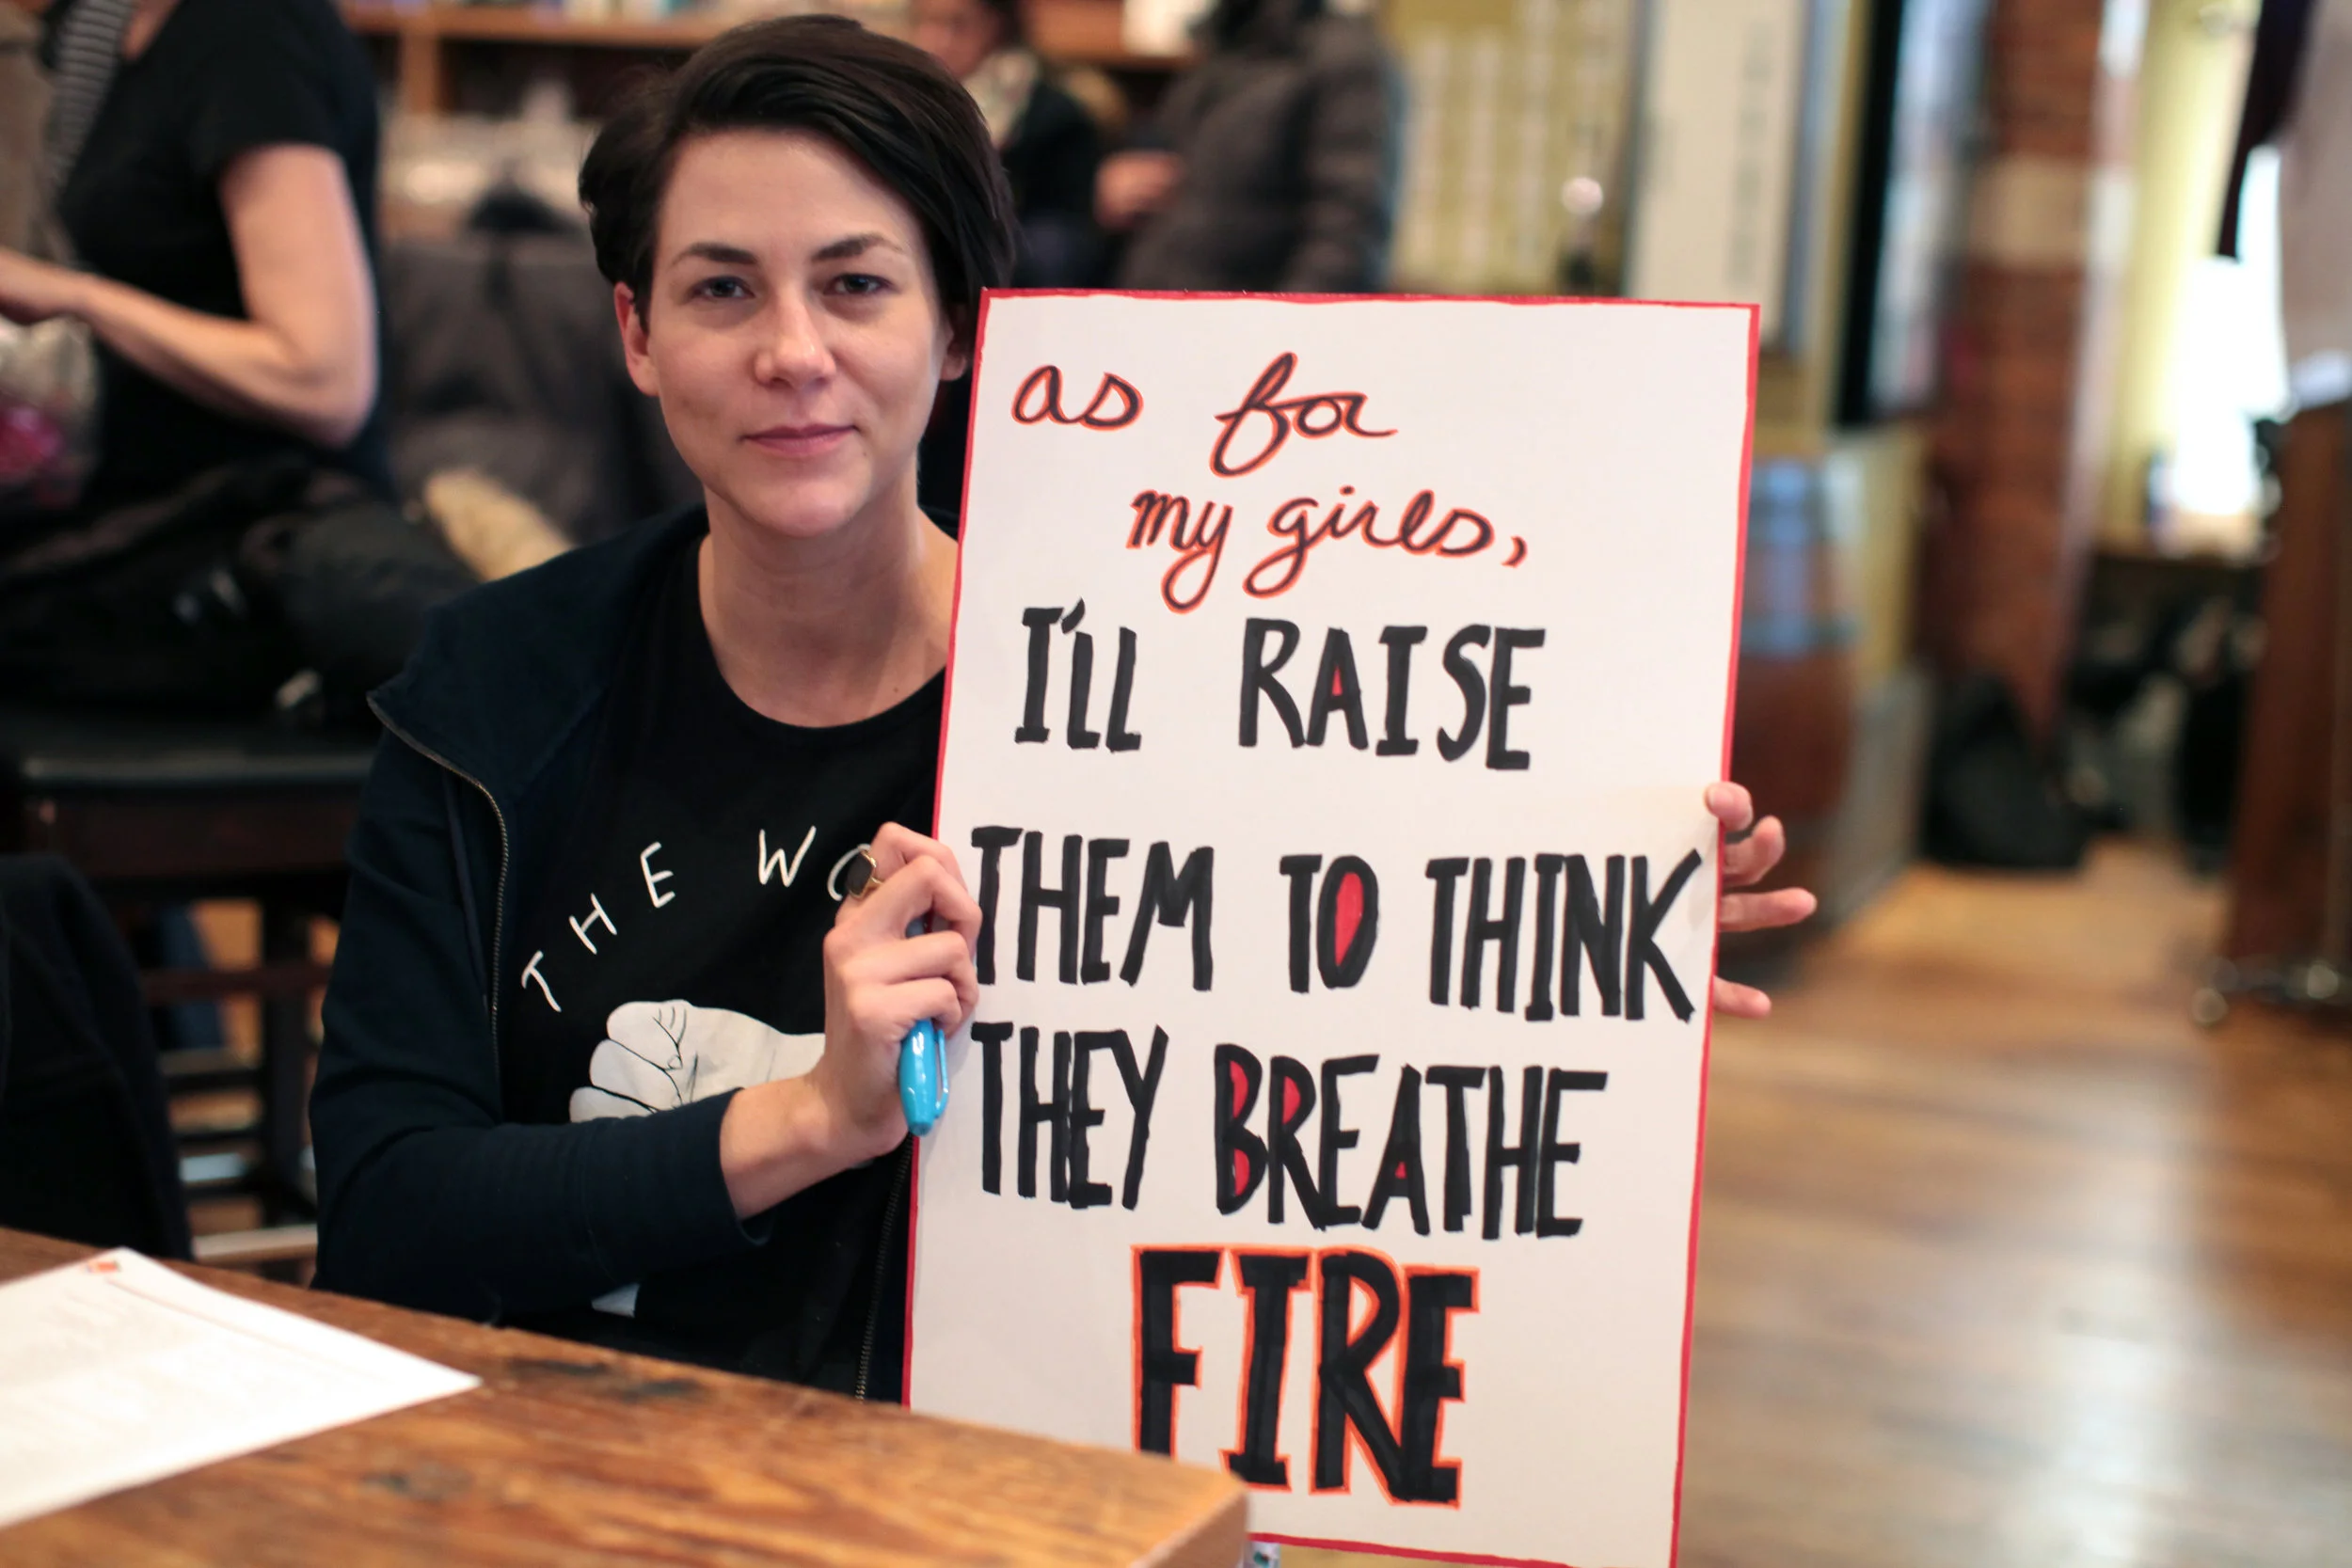 as for
my girls,
I'll RAISE
THEM TO THINK
THEY BREATHE
FIRE
THE WO